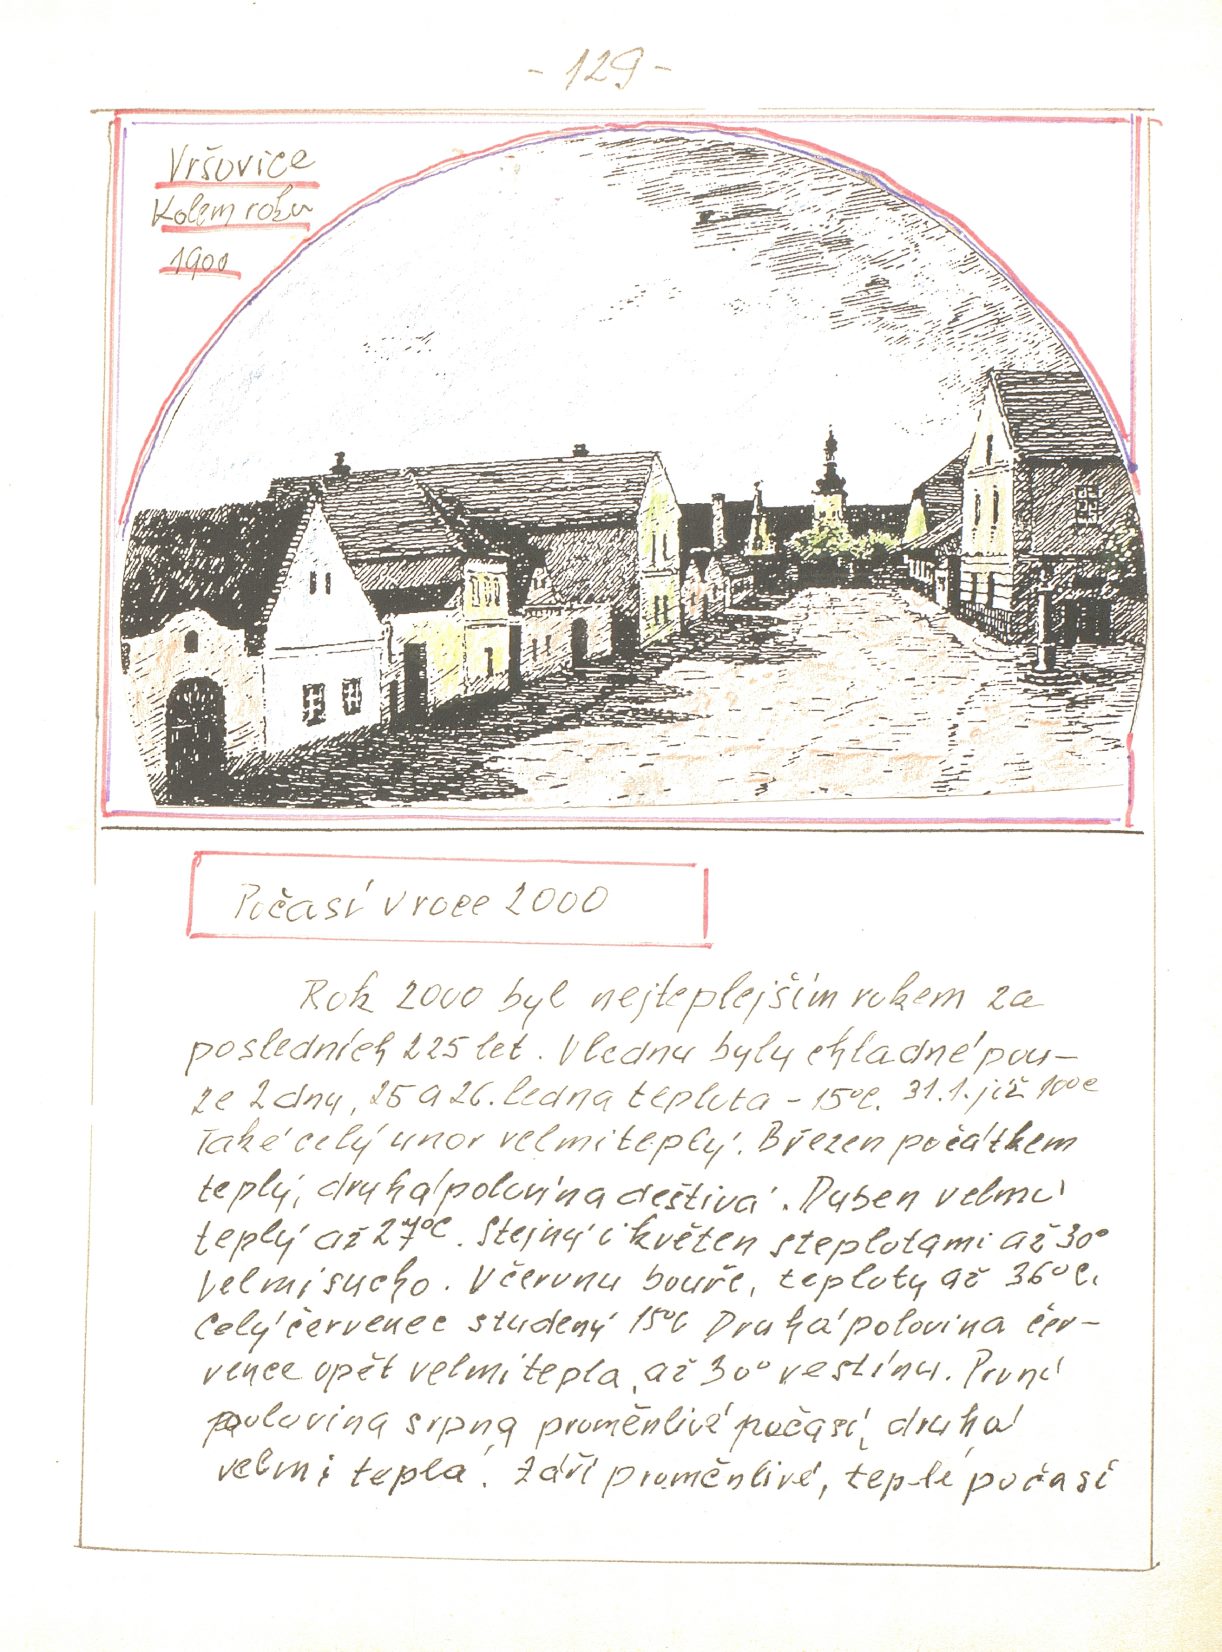 - 129 -
Vršovice
Kolem roku
1900
Počasí v roce 2000
Rok 2000 byl nejteplejším rokem za
posledních 225 let. V lednu byly chladné pou-
ze 2 dny, 25 a 26. ledna teplota - 15°C. 31.1. již 10°C
Také celý unor velmi teplý. Březen počátkem
teplý, druhá polovina deštivá. Duben velmi
teplý až 27°C. Stejný i květen s teplotami až 30°
Velmi sucho. V červnu bouře, teploty až 36°C.
Celý červenec studený 15°C Druhá polovina čer-
vence opět velmi tepla, až 30° ve stínu. První
polovina srpna proměnlivé počasí, druhá
velmi teplá. Září proměnlivé, teplé počasí